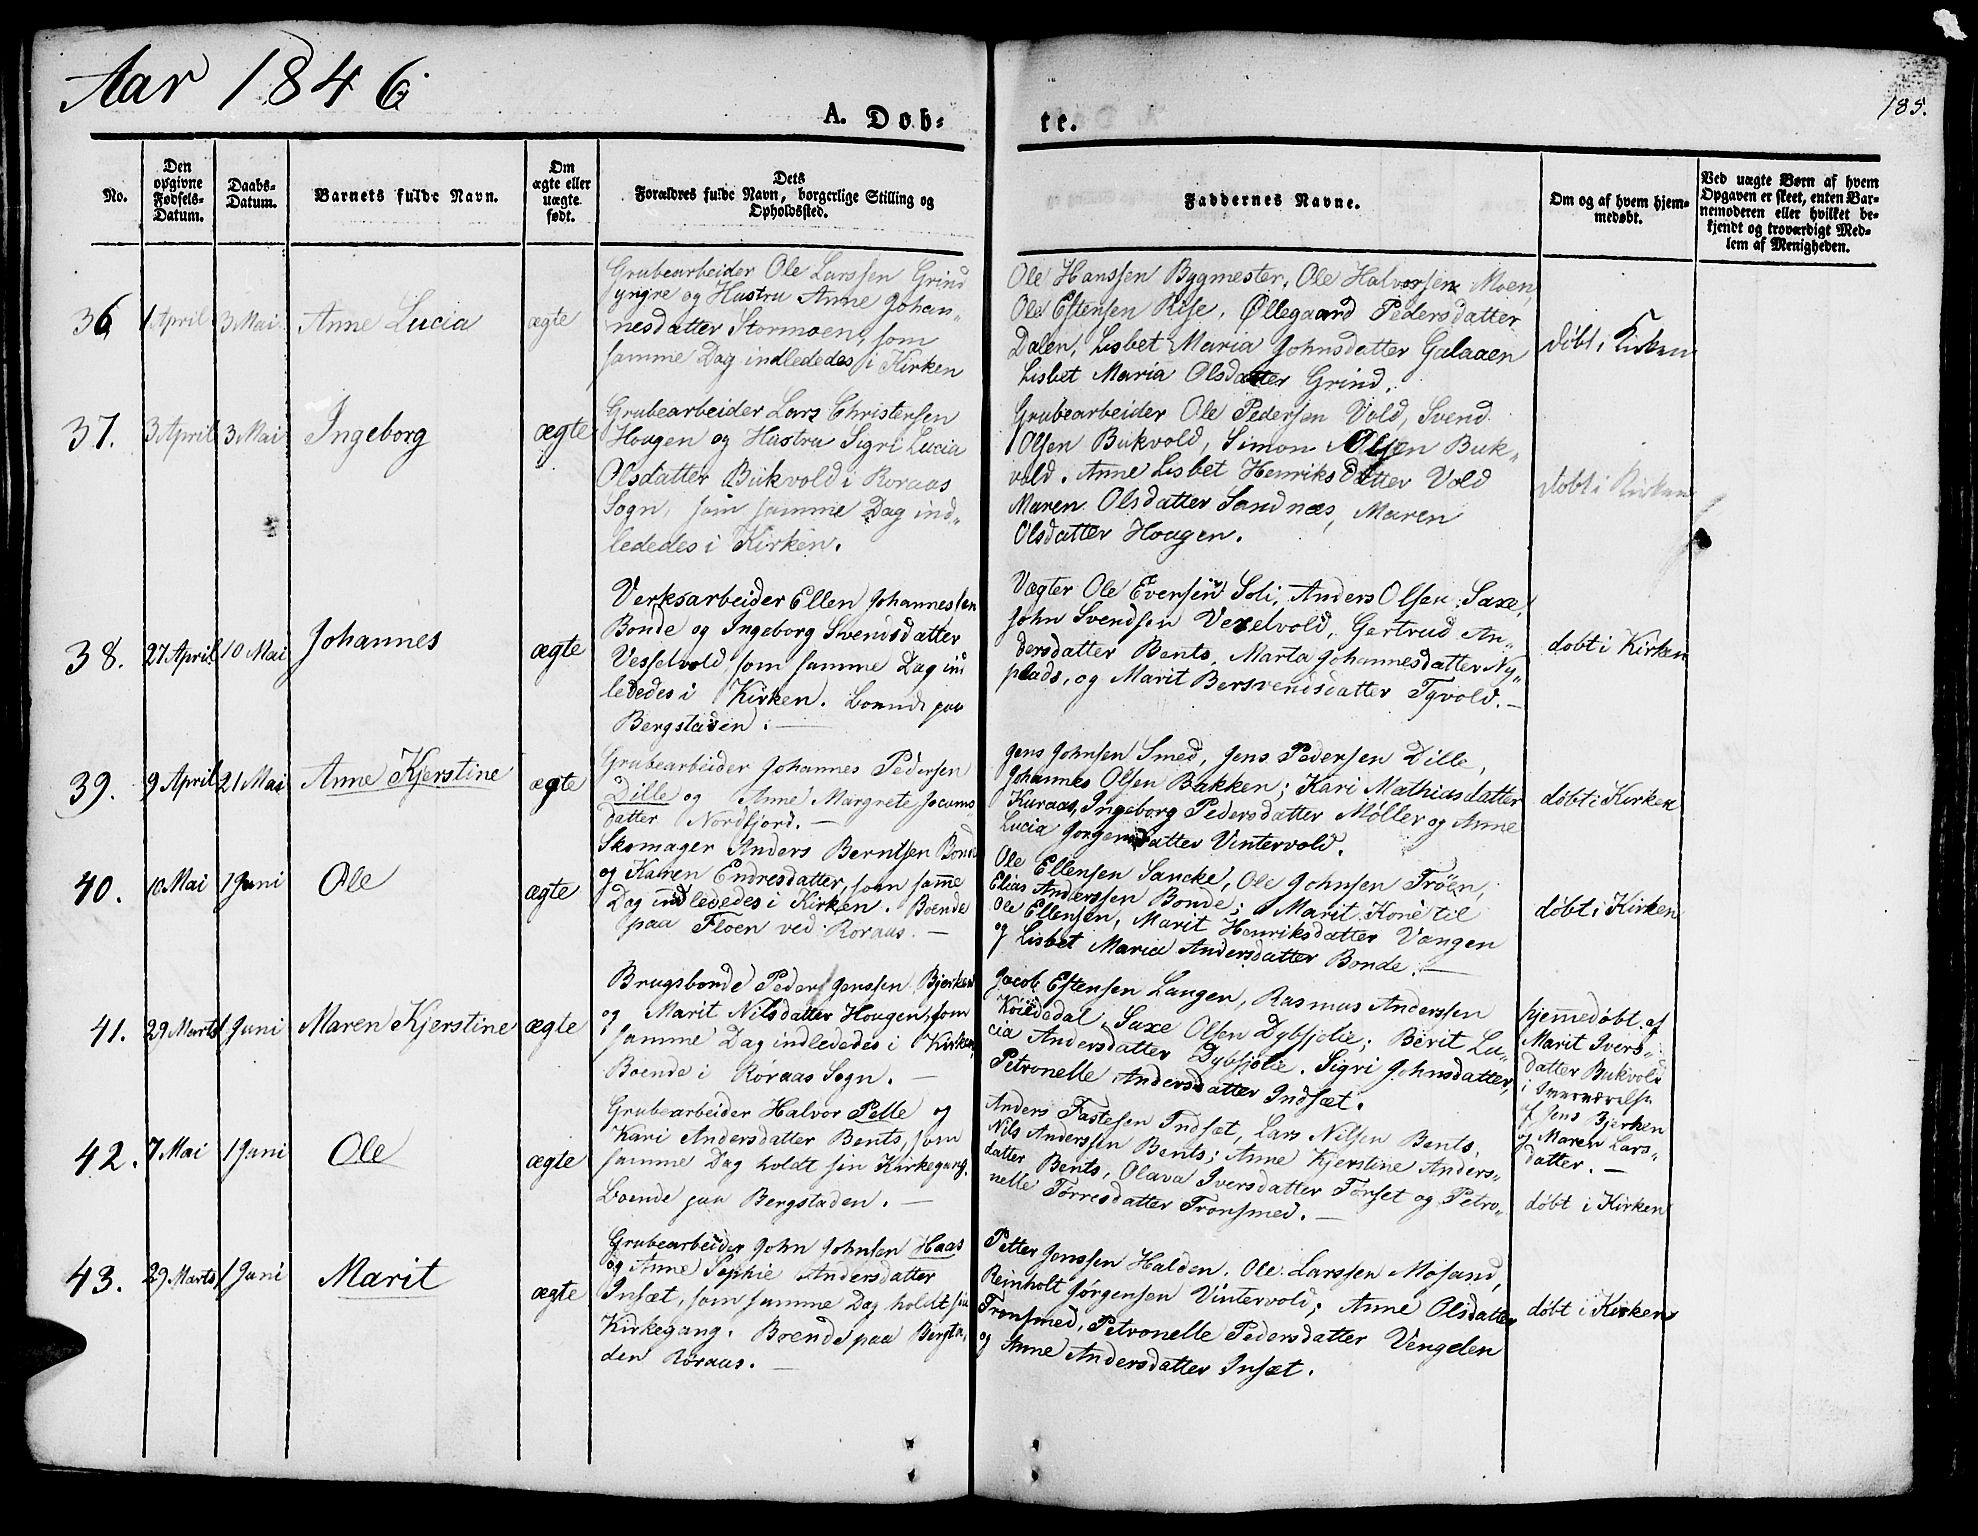 Aar 1846
A. Døb-
te.
185.
No.
Den
opgivne
Fødsels-
Datum.
Daabs-
Datum.
Barnets fulde Navn.
Om
ægte eller
uægte
født.
Dets
Forældres fulde Navn, borgerlige Stilling og
Opholdssted.
Faddernes Navne.
Om og af hvem hjem-
medøbt.
Ved uægte Børn af hvem
Opgaven er skeet, enten Bar-
nemoderen eller hvilket be-
kjendt og troværdigt Med-
lem af Menigheden.
36 1 April 3 Mai Anne Lucia ægte
Grubearbeider Ole Larssen Grind
yngre og Hustru Anne Johan-
nesdatter Stormoen, som
samme Dag indlededes i Kirken
Ole Hanssen Bygmester, Ole Halvorsen Moen,
Ole Estensen Rise, Øllegaard Pedersdatter
Dalen, Lisbet Maria Johnsdatter Galaaen
Lisbet Maria Olsdatter Grind.
døbt i Kirken
37. 3 April 3 Mai Ingeborg ægte
Grubearbeider Lars Christensen
Hougen og Hustru Sigri Lucia
Olsdatter Bukvold i Røraas
Sogn, som samme Dag ind-
lededes i Kirken.
Grubearbeider Ole Pedersen Vold, Svend
Olsen Bukvold, Simon Olsen Buk-
vold. Anne Lisbet Henriksdatter Vold
Maren Olsdatter Sandnæs, Maren
Olsdatter Hougen.
døbt i Kirken
38. 27 April 10 Mai Johannes ægte
Verksarbeider Ellen Johannessen
Bonde og Ingeborg Svendsdatter
Vesselvold som samme Dag ind
lededes i Kirken. Boende paa
Bergstaden.
Vægter Ole Evensen Soli, Anders Olsen Saxe,
John Svendsen Vexelvold, Gertrud An-
dersdatter Bents, Marta Johannesdatter Ny-
plads, og Marit Bersvendsdatter Tyvold.
døbt i Kirken
39. 9 April 21 Mai Anne Kjerstine ægte
Grubearbeider Johannes Pedersen
Dille og Anne Margrete Jocums
datter Nordfjord.
Jens Johnsen Smed, Jens Pedersen Dille,
Johannes Olsen Bakken; Kari Mathiasdatter
Kuraas, Ingeborg Pedersdatter Møller og Anne
Lucia Jørgensdatter Vintervold.
døbt i Kirken
40. 10 Mai 1 Juni Ole ægte
Skomager Anders Berntsen Bonde
og Karen Endresdatter, som samme
Dag indlededes i Kirken. Boende
paa Floen ved Røraas.
Ole Ellensen Sancke, Ole Johnsen Trøen,
Elias Anderssen Bonde; Marit Kone til
Ole Ellensen, Marit Henriksdatter Vangen
og Lisbet Maria Andersdatter Bonde.
døbt i Kirken
41. 29 Marts 1 Juni Maren Kjerstine ægte
Brugsbonde Peder Jenssen Bjerken
og Marit Nilsdatter Hougen, som
samme Dag indlededes i Kirken,
Boende i Røraas Sogn.
Jacob Estensen Langen, Rasmus Anderssen
Koiedadal, Saxe Olsen Dybsjølie; Berit Lu-
cia Andersdatter Dybsjølie. Sigri Johnsdatter,
Petronelle Andersdatter Indset.
hjemmedøbt af
Marit Ivers-
datter Bukvold
i Overværelse
af Jens Bjerken
og Maren Lars-
datter.
42. 7 Mai 1 Juni Ole ægte
Grubearbeider Halvor Pelle og
Kari Andersdatter Bents, som
samme Dag holdt sin Kirkegang.
Boende paa Bergstaden.
Anders Fastesen Indsæt, Lars Nilsen Bents,
Nils Anderssen Bents; Anne Kjerstine Anders-
datter Bents, Olava Iversdatter Tønset og Petro-
nelle Tørresdatter Tronsmed.
døbt i Kirken
43. 29 Marts 1 Juni Marit ægte
Grubearbeider John Johnsen Haas
og Anne Sophie Andersdatter
Insæt, som samme Dag holdt sin
Kirkegang. Boende paa Bergsta-
den Røraas.
Petter Jenssen Halden, Ole Larssen Mosand,
Reinholt Jørgensen Vintervold; Anne Olsdatter
Tronsmed, Petronelle Pedersdatter Vengelen
og Anne Andersdatter Insæt.
døbt i Kirken